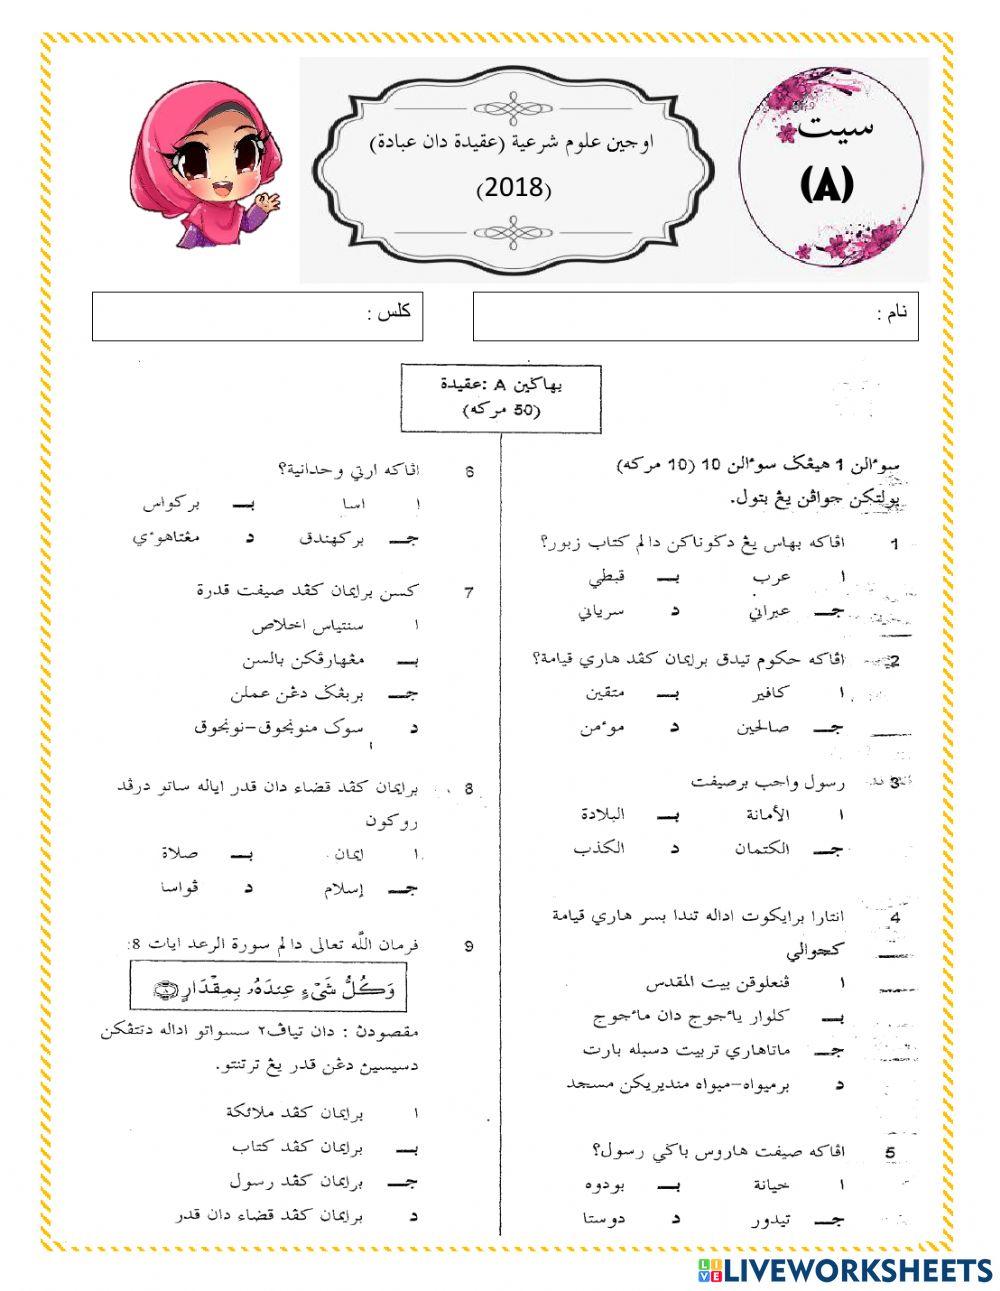 سيت
(A)
اوجين علوم شرعية (عقيدة دان عبادة)
(2018)
نام :
كلس :
بهاڬين A :عقيدة
(50 مركه)
سوءالن 1 هيڠݢ سوءالن 10 (10 مركه)
بولتكن جواڤن يڠ بتول.
1 اڤاكه بهاس يڠ دݢوناكن دالم كتاب زبور؟
ا عرب بـ قبطي
جـ عبراني د سرياني
2 اڤاكه حكوم تيدق برايمان كڤد هاري قيامة؟
ا كافير بـ متقين
جـ صالحين د موءمن
3 رسول واجب برصيفت
ا الأمانة بـ البلادة
جـ الكتمان د الكذب
4 انتارا برايكوت اداله تندا بسر هاري قيامة
كچوالي
ا ڤنعلوقن بيت المقدس
بـ كلوار ياءجوج دان ماءجوج
جـ ماتاهاري تربيت دسبله بارت
د برميواه-ميواه منديريكن مسجد
5 اڤاكه صيفت هاروس باݢي رسول؟
ا خيانة بـ بودوه
جـ تيدور د دوستا
6 اڤاكه ارتي وحدانية؟
ا اسا بـ بركواس
جـ بركهندق د مڠتاهوءي
7 كسن برايمان كڤد صيفت قدرة
ا سنتياس اخلاص
بـ مڠهارڤكن بالسن
جـ بربڠݢ دڠن عملن
د سوک منونجوق-نونجوق
8 برايمان كڤد قضاء دان قدر اياله ساتو درڤد
روكون
ا ايمان بـ صلاة
جـ إسلام د ڤواسا
9 فرمان الله تعالى دالم سورة الرعد ايات 8:
وَكُلُّ شَىْءٍ عِندَهُۥ بِمِقْدَارٍ ۝٨
مقصودڽ : دان تياڤ٢ سسواتو اداله دتتڤكن
دسيسين دڠن قدر يڠ ترتنتو.
ا برايمان كڤد ملائكة
بـ برايمان كڤد كتاب
جـ برايمان كڤد رسول
د برايمان كڤد قضاء دان قدر
LIVEWORKSHEETS